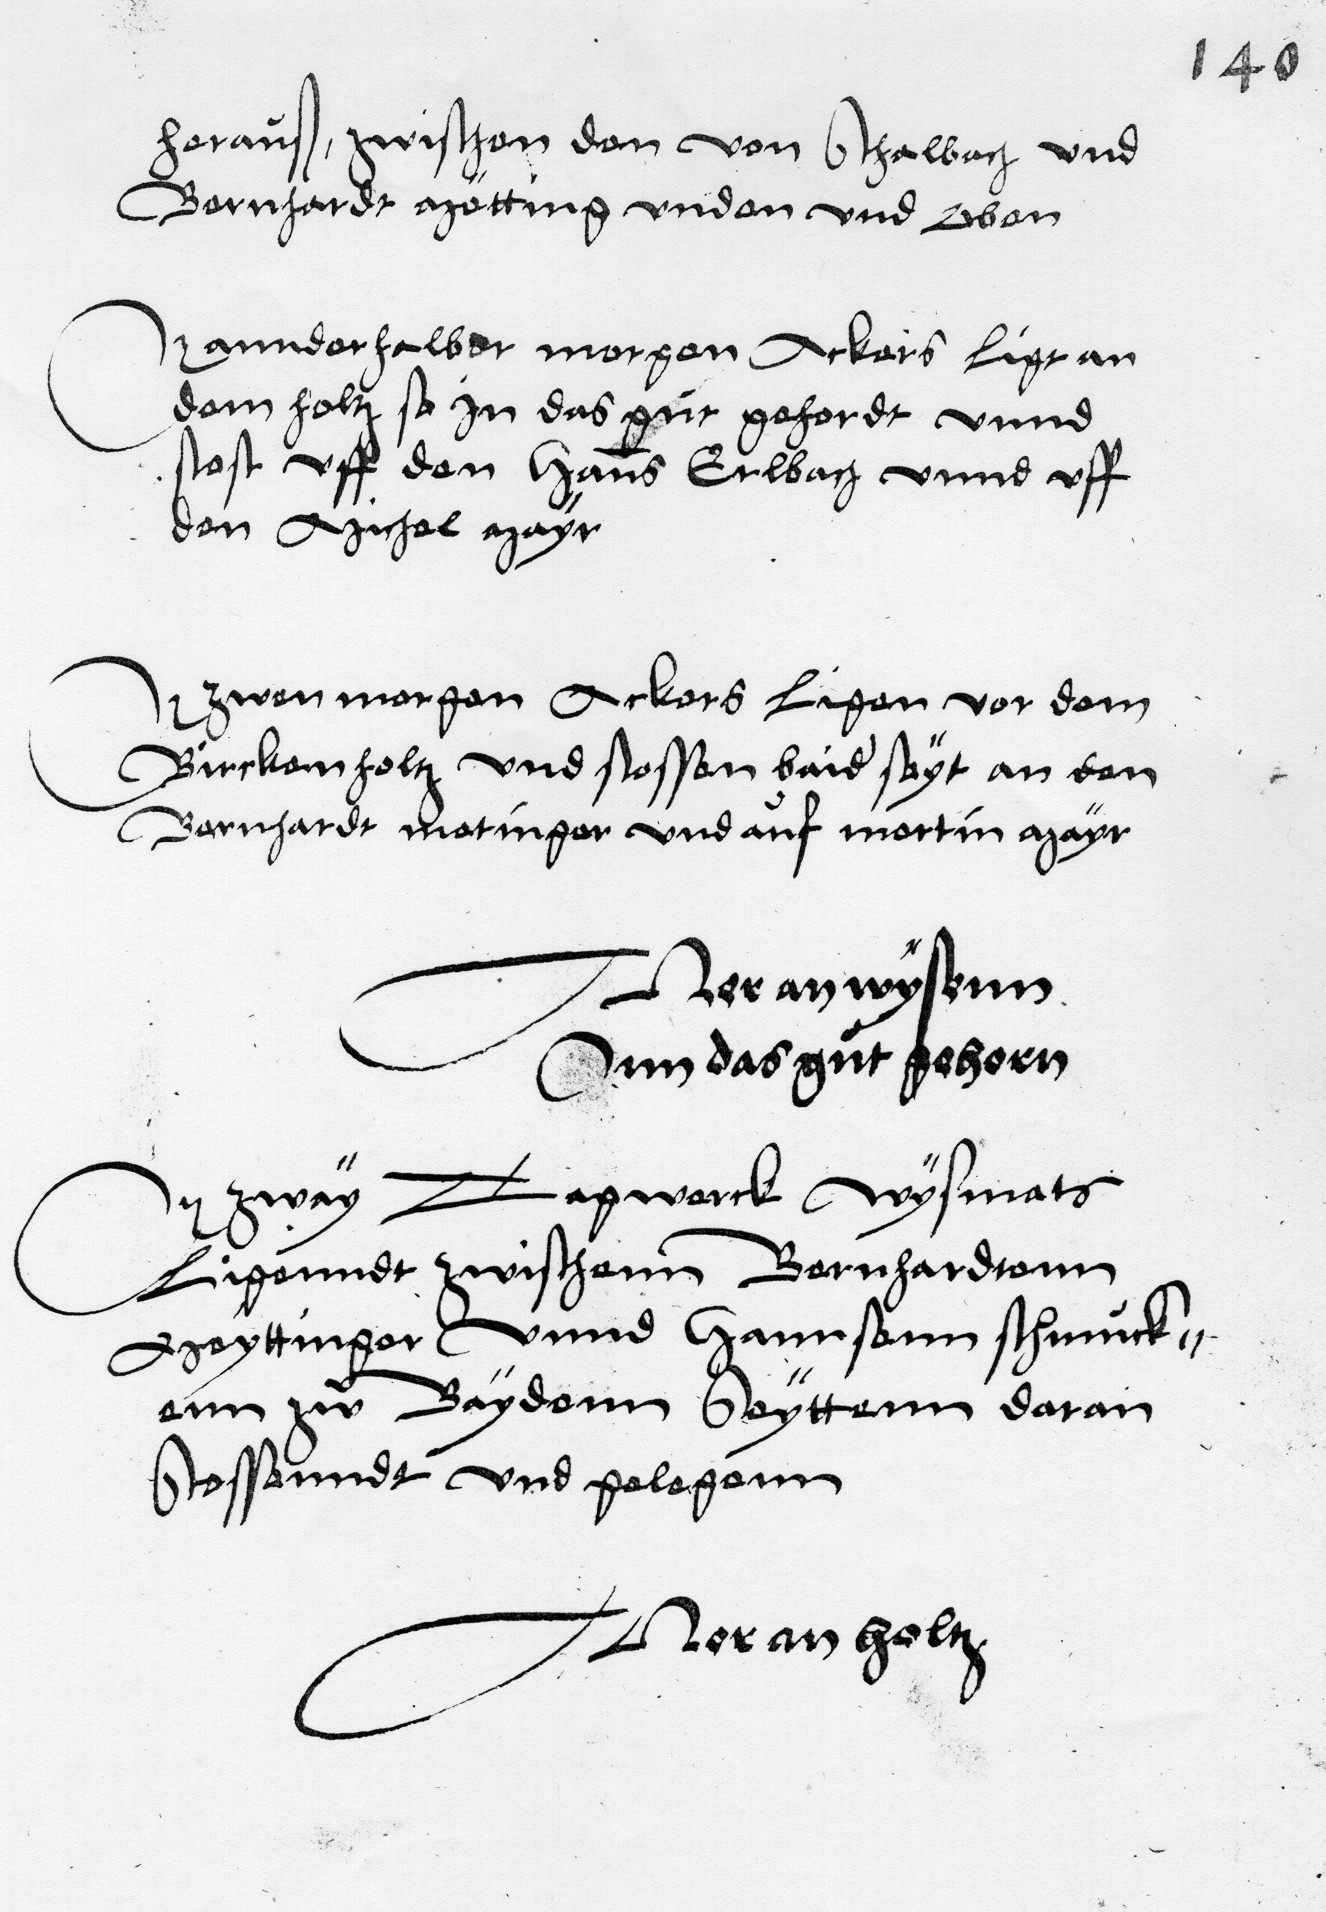 140
herauß, zwischen den von Schalbach und
Bernhardt Mötting unden und Oben
It annderhalber morgen Ackers ligt an
dem holtz so in das gůt gehordt unnd
stost uff den Hanns Erlbach unnd uff
den Michel Mayr
It zwen morgen Ackers Ligen vor dem
Birckenholtz und stossen baid seÿt an den
Bernhardt metinger und aůf mertin Maÿr
Mer an wÿsenn
Inn das gůt gehorn
It zwaÿ Tagwerck wÿsmats
Ligenndt zwischenn Bernhardtenn
Meyttinger Unnd Hannsenn schmůck⸗
enn zů Baÿdenn Seÿttenn daran
Stossenndt und gelegenn
Mer an holtz